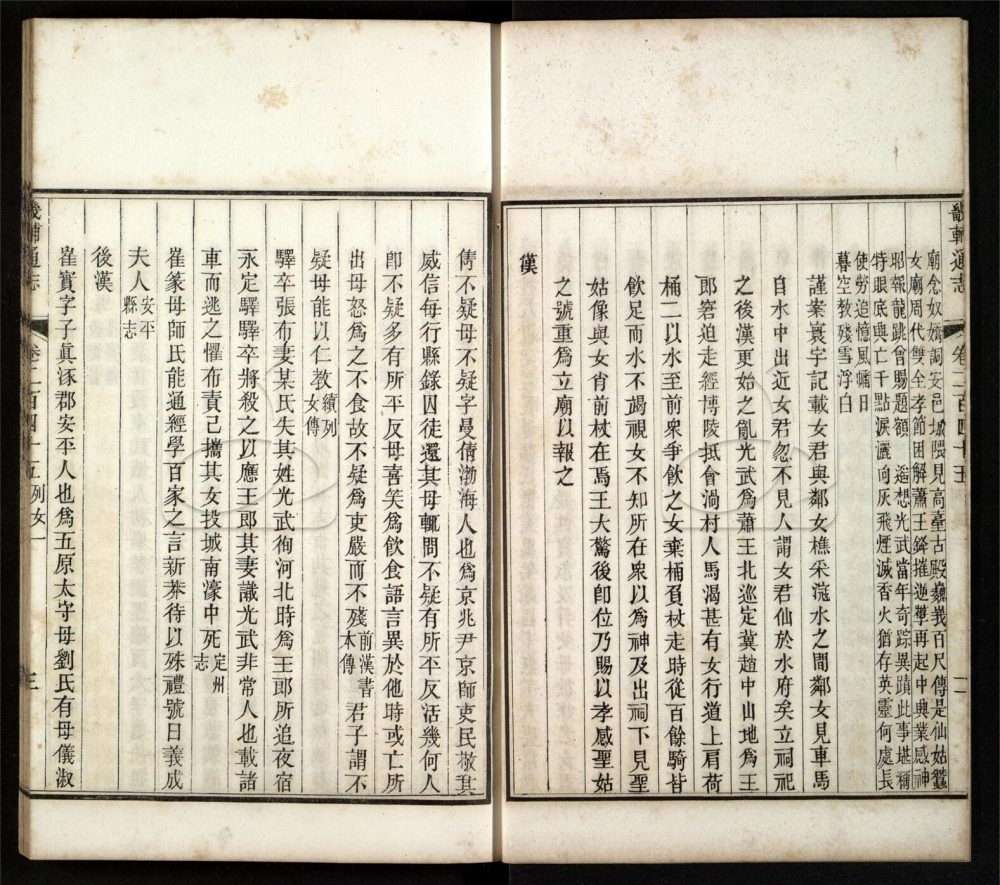 畿輔通志 卷二百四十五
廟念奴嬌詞安邑城隈見高臺古殿巍義百尺傳是仙姑蠶
女廟周代雙全孝節困解蕭王鋒摧逆孽再起中興業感神
昭報龍跳曾賜題額 遙想光武當年奇踪異蹟此事堪稱
特眼底興亡千點淚灑向灰飛煙滅香火猶存英靈何處長
使勞追憶風幡日
暮空教殘雪浮白
謹案寰宇記載女君與鄰女樵采滱水之間鄰女見車馬
自水中出近女君忽不見人謂女君仙於水府矣立祠祀
之後漢更始之亂光武爲蕭王北巡定冀趙中山地爲王
郎窘迫走經博陵抵會渦村人馬渴甚有女行道上肩荷
桶二以水至前衆爭飲之女棄桶負杖走時從百餘騎皆
飲足而水不竭視女不知所在衆以爲神及出祠下見聖
姑像與女肖前杖在焉王大驚後卽位乃賜以孝感聖姑
之號重爲立廟以報之
漢
雋不疑母不疑字曼倩渤海人也爲京兆尹京師吏民敬其
威信每行縣錄囚徒還其母輒問不疑有所平反活幾何人
卽不疑多有所平反母喜笑爲飲食語言異於他時或亡所
出母怒爲之不食故不疑爲吏嚴而不殘前漢書本傳君子謂不
疑母能以仁教續列女傳
驛卒張布妻某氏失其姓光武徇河北時爲王郎所追夜宿
永定驛驛卒將殺之以應王郎其妻識光武非常人也載諸
車而逃之懼布責己攜其女投城南濠中死定州志
崔篆母師氏能通經學百家之言新莽待以殊禮號曰義成
夫人安平縣志
後漢
崔寔字子眞涿郡安平人也爲五原太守母劉氏有母儀淑
畿輔通志 卷二百四十五 列女一 三